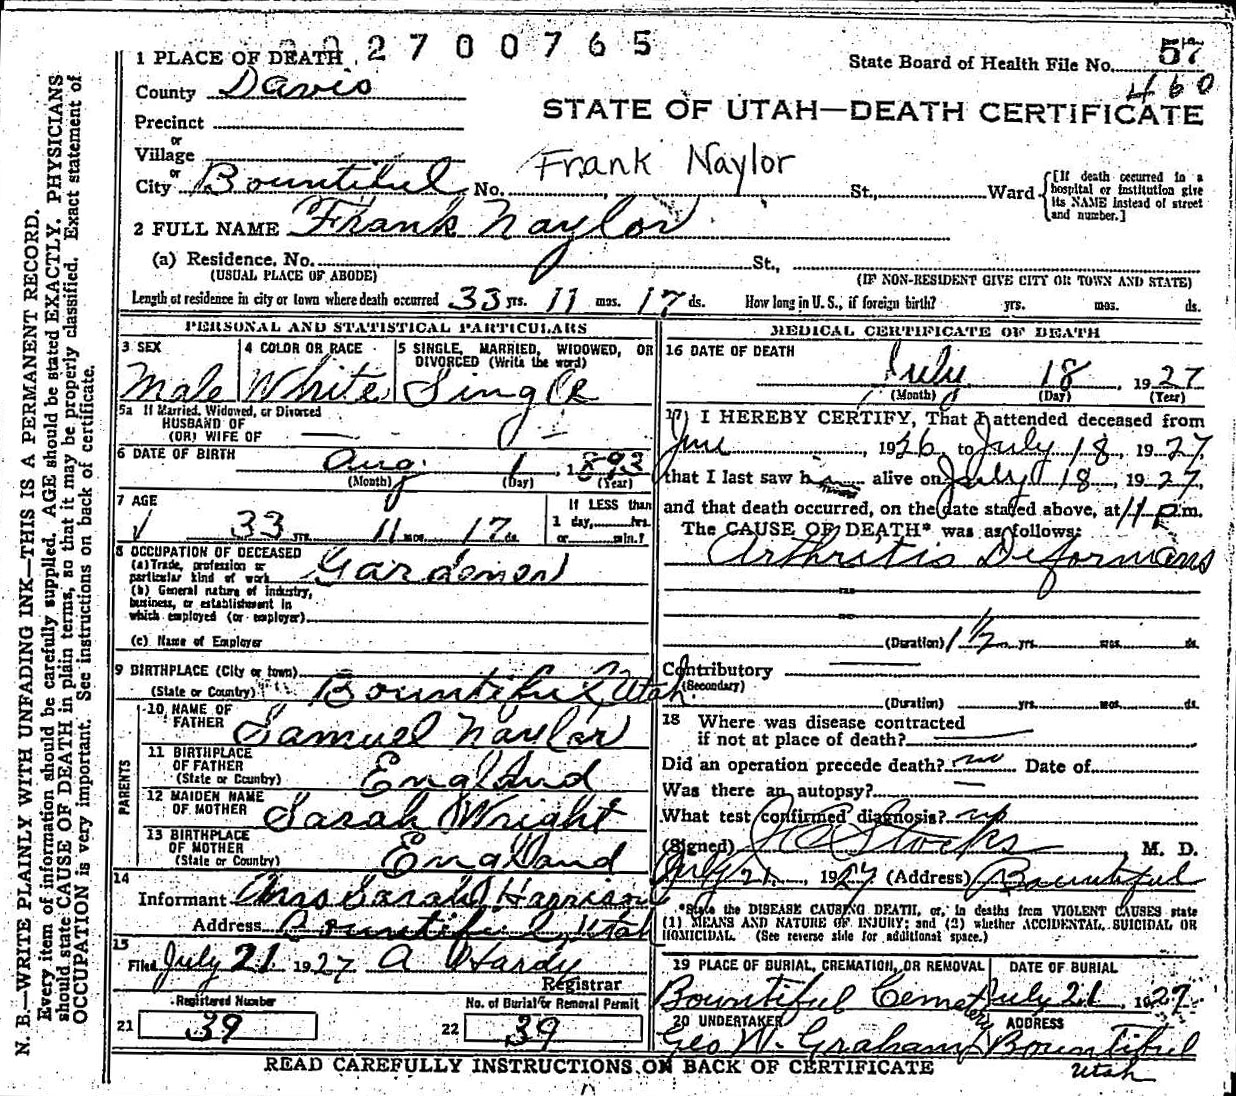 2 7 0 0 7 6 5
1 PLACE OF DEATH
State Board of Health File No. 57
460
County Davis
STATE OF UTAH—DEATH CERTIFICATE
Precinct
or
Village
Frank Naylor
or
City Bountiful No. St., Ward
[If death occurred in a
hospital or institution give
its NAME instead of street
and number.]
2 FULL NAME Frank Naylor
(a) Residence. No. St.,
(USUAL PLACE OF ABODE) (IF NON-RESIDENT GIVE CITY OR TOWN AND STATE)
Length of residence in city or town where death occurred 33 yrs. 11 mos. 17 ds. How long in U. S., if foreign birth? yrs. mos. ds.
PERSONAL AND STATISTICAL PARTICULARS
3 SEX
Male
4 COLOR OR RACE
White
5 SINGLE, MARRIED, WIDOWED, OR
DIVORCED (Write the word)
Single
5a If Married, Widowed, or Divorced
HUSBAND OF
(OR) WIFE OF
6 DATE OF BIRTH Aug. 1, 1893
(Month) (Day) (Year)
7 AGE
33 yrs. 11 mos. 17 ds.
If LESS than
1 day, hrs.
or min.?
8 OCCUPATION OF DECEASED
(a) Trade, profession or
particular kind of work Gardener
(b) General nature of industry,
business, or establishment in
which employed (or employer)
(c) Name of Employer
9 BIRTHPLACE (City or town)
(State or Country) Bountiful Utah.
PARENTS
10 NAME OF
FATHER Samuel Naylor
11 BIRTHPLACE
OF FATHER
(State or Country) England
12 MAIDEN NAME
OF MOTHER Sarah Wright
13 BIRTHPLACE
OF MOTHER
(State or Country) England
14
Informant Mrs Sarah Harrison
Address Bountiful, Utah
15
Filed July 21 1927 A Hardy
Registrar
Registered Number
21 39
No. of Burial or Removal Permit
22 39
MEDICAL CERTIFICATE OF DEATH
16 DATE OF DEATH
July 18, 1927
(Month) (Day) (Year)
17 I HEREBY CERTIFY, That I attended deceased from
June, 1926 to July 18, 1927
that I last saw h alive on July 18, 1927
and that death occurred, on the date stated above, at 11 p.m.
The CAUSE OF DEATH* was as follows:
Arthritis Deformans
(Duration) 1 1/2 yrs. mos. ds.
Contributory
(Secondary)
(Duration) yrs. mos. ds.
18 Where was disease contracted
if not at place of death?
Did an operation precede death? no Date of
Was there an autopsy?
What test confirmed diagnosis?
(Signed) Stocks, M. D.
July 21, 1927 (Address) Bountiful
*State the DISEASE CAUSING DEATH, or, in deaths from VIOLENT CAUSES state
(1) MEANS AND NATURE OF INJURY; and (2) whether ACCIDENTAL, SUICIDAL OR
HOMICIDAL. (See reverse side for additional space.)
19 PLACE OF BURIAL, CREMATION, OR REMOVAL
Bountiful Cemetery
DATE OF BURIAL
July 21, 1927
20 UNDERTAKER
Geo W. Graham
ADDRESS
Bountiful
Utah
READ CAREFULLY INSTRUCTIONS ON BACK OF CERTIFICATE
N. B.—WRITE PLAINLY WITH UNFADING INK—THIS IS A PERMANENT RECORD.
Every item of information should be carefully supplied. AGE should be stated EXACTLY. PHYSICIANS
should state CAUSE OF DEATH in plain terms, so that it may be properly classified. Exact statement of
OCCUPATION is very important. See instructions on back of certificate.